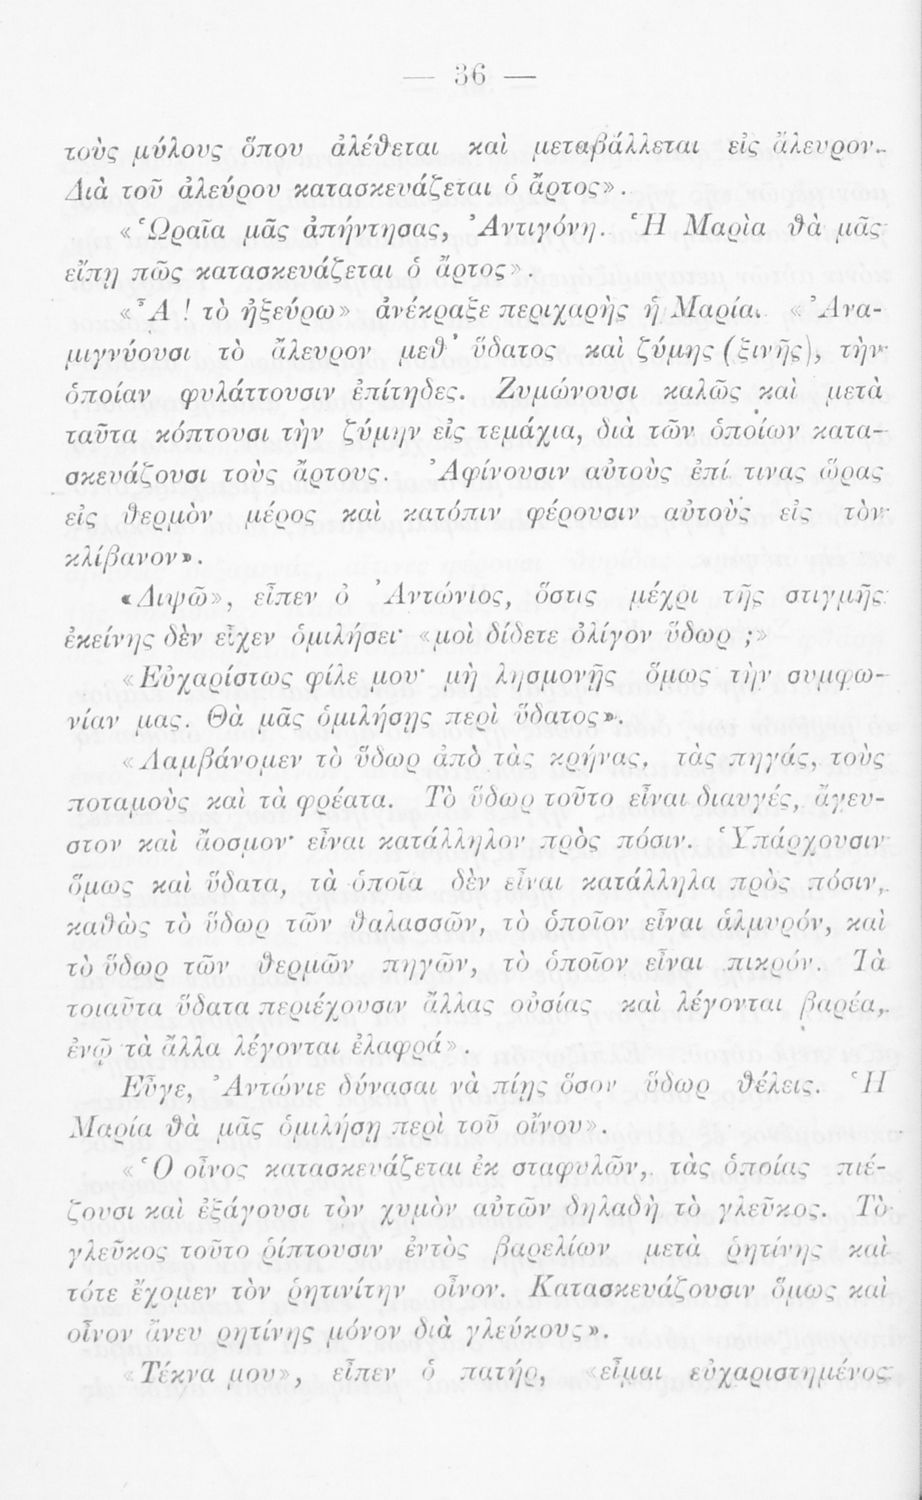 — 36 —
τοὺς μύλους ὅπου ἀλέθεται καὶ μεταβάλλεται εἰς ἄλευρον.
Διὰ τοῦ ἀλεύρου κατασκευάζεται ὁ ἄρτος».
«Ὡραῖα μᾶς ἀπήντησας, Ἀντιγόνη. Ἡ Μαρία θὰ μᾶς
εἴπῃ πῶς κατασκευάζεται ὁ ἄρτος».
«Ἆ! τὸ ἠξεύρω» ἀνέκραξε περιχαρὴς ἡ Μαρία. «Ἀνα-
μιγνύουσι τὸ ἄλευρον μεθ' ὕδατος καὶ ζύμης (ξινῆς), τὴν
ὁποίαν φυλάττουσιν ἐπίτηδες. Ζυμώνουσι καλῶς καὶ μετὰ
ταῦτα κόπτουσι τὴν ζύμην εἰς τεμάχια, διὰ τῶν ὁποίων κατα-
σκευάζουσι τοὺς ἄρτους. Ἀφίνουσιν αὐτοὺς ἐπί τινας ὥρας
εἰς θερμὸν μέρος καὶ κατόπιν φέρουσιν αὐτοὺς εἰς τὸν
κλίβανον».
«Διψῶ», εἶπεν ὁ Ἀντώνιος, ὅστις μέχρι τῆς στιγμῆς
ἐκείνης δὲν εἶχεν ὁμιλήσει· «μοὶ δίδετε ὀλίγον ὕδωρ ;»
«Εὐχαρίστως φίλε μου· μὴ λησμονῇς ὅμως τὴν συμφω-
νίαν μας. Θὰ μᾶς ὁμιλήσῃς περὶ ὕδατος».
«Λαμβάνομεν τὸ ὕδωρ ἀπὸ τὰς κρήνας, τὰς πηγάς, τοὺς
ποταμοὺς καὶ τὰ φρέατα. Τὸ ὕδωρ τοῦτο εἶναι διαυγές, ἄγευ-
στον καὶ ἄοσμον· εἶναι κατάλληλον πρὸς πόσιν. Ὑπάρχουσιν
ὅμως καὶ ὕδατα, τὰ ὁποῖα δὲν εἶναι κατάλληλα πρὸς πόσιν,
καθὼς τὸ ὕδωρ τῶν θαλασσῶν, τὸ ὁποῖον εἶναι ἁλμυρόν, καὶ
τὸ ὕδωρ τῶν θερμῶν πηγῶν, τὸ ὁποῖον εἶναι πικρόν. Τὰ
τοιαῦτα ὕδατα περιέχουσιν ἄλλας οὐσίας καὶ λέγονται βαρέα,
ἐνῷ τὰ ἄλλα λέγονται ἐλαφρά».
Εὖγε, Ἀντώνιε δύνασαι νὰ πίῃς ὅσον ὕδωρ θέλεις. Ἡ
Μαρία θὰ μᾶς ὁμιλήσῃ περὶ τοῦ οἴνου».
«Ὁ οἶνος κατασκευάζεται ἐκ σταφυλῶν, τὰς ὁποίας πιέ-
ζουσι καὶ ἐξάγουσι τὸν χυμὸν αὐτῶν δηλαδὴ τὸ γλεῦκος. Τὸ
γλεῦκος τοῦτο ῥίπτουσιν ἐντὸς βαρελίων μετὰ ῥητίνης καὶ
τότε ἔχομεν τὸν ῥητινίτην οἶνον. Κατασκευάζουσιν ὅμως καὶ
οἶνον ἄνευ ρητίνης μόνον διὰ γλεύκους».
«Τέκνα μου», εἶπεν ὁ πατήρ, «εἶμαι εὐχαριστημένος